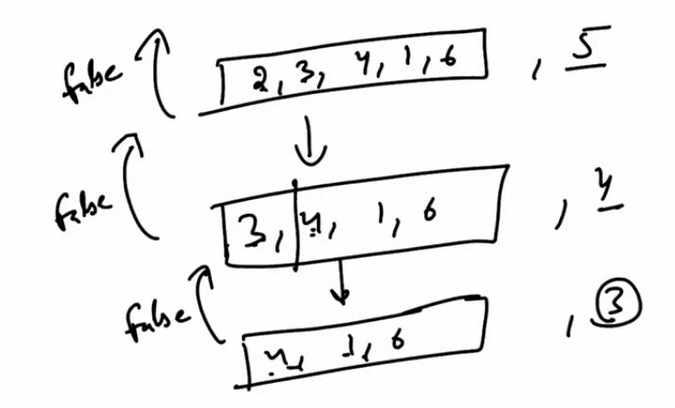 false 2, 3, 4, 1, 6 , 5
false 3, 4, 1, 6 , 4
false 4, 1, 6 , 3